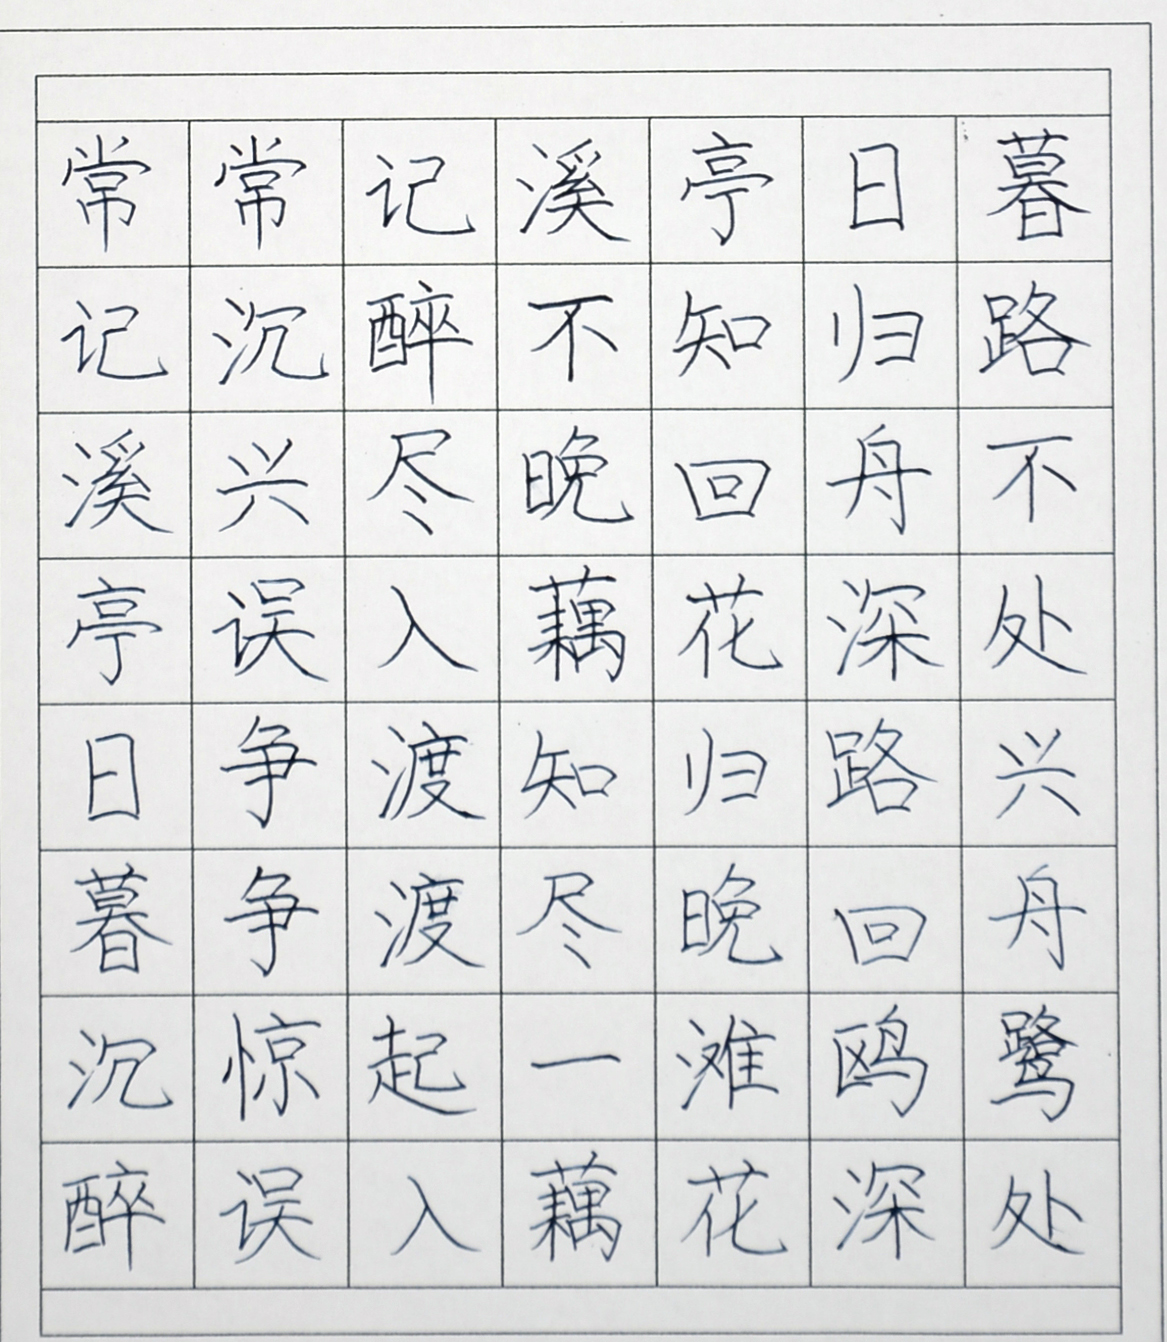 常常记溪亭日暮
记沉醉不知归路
溪兴尽晚回舟不
亭误入藕花深处
日争渡知归路兴
暮争渡尽晚回舟
沉惊起一滩鸥鹭
醉误入藕花深处